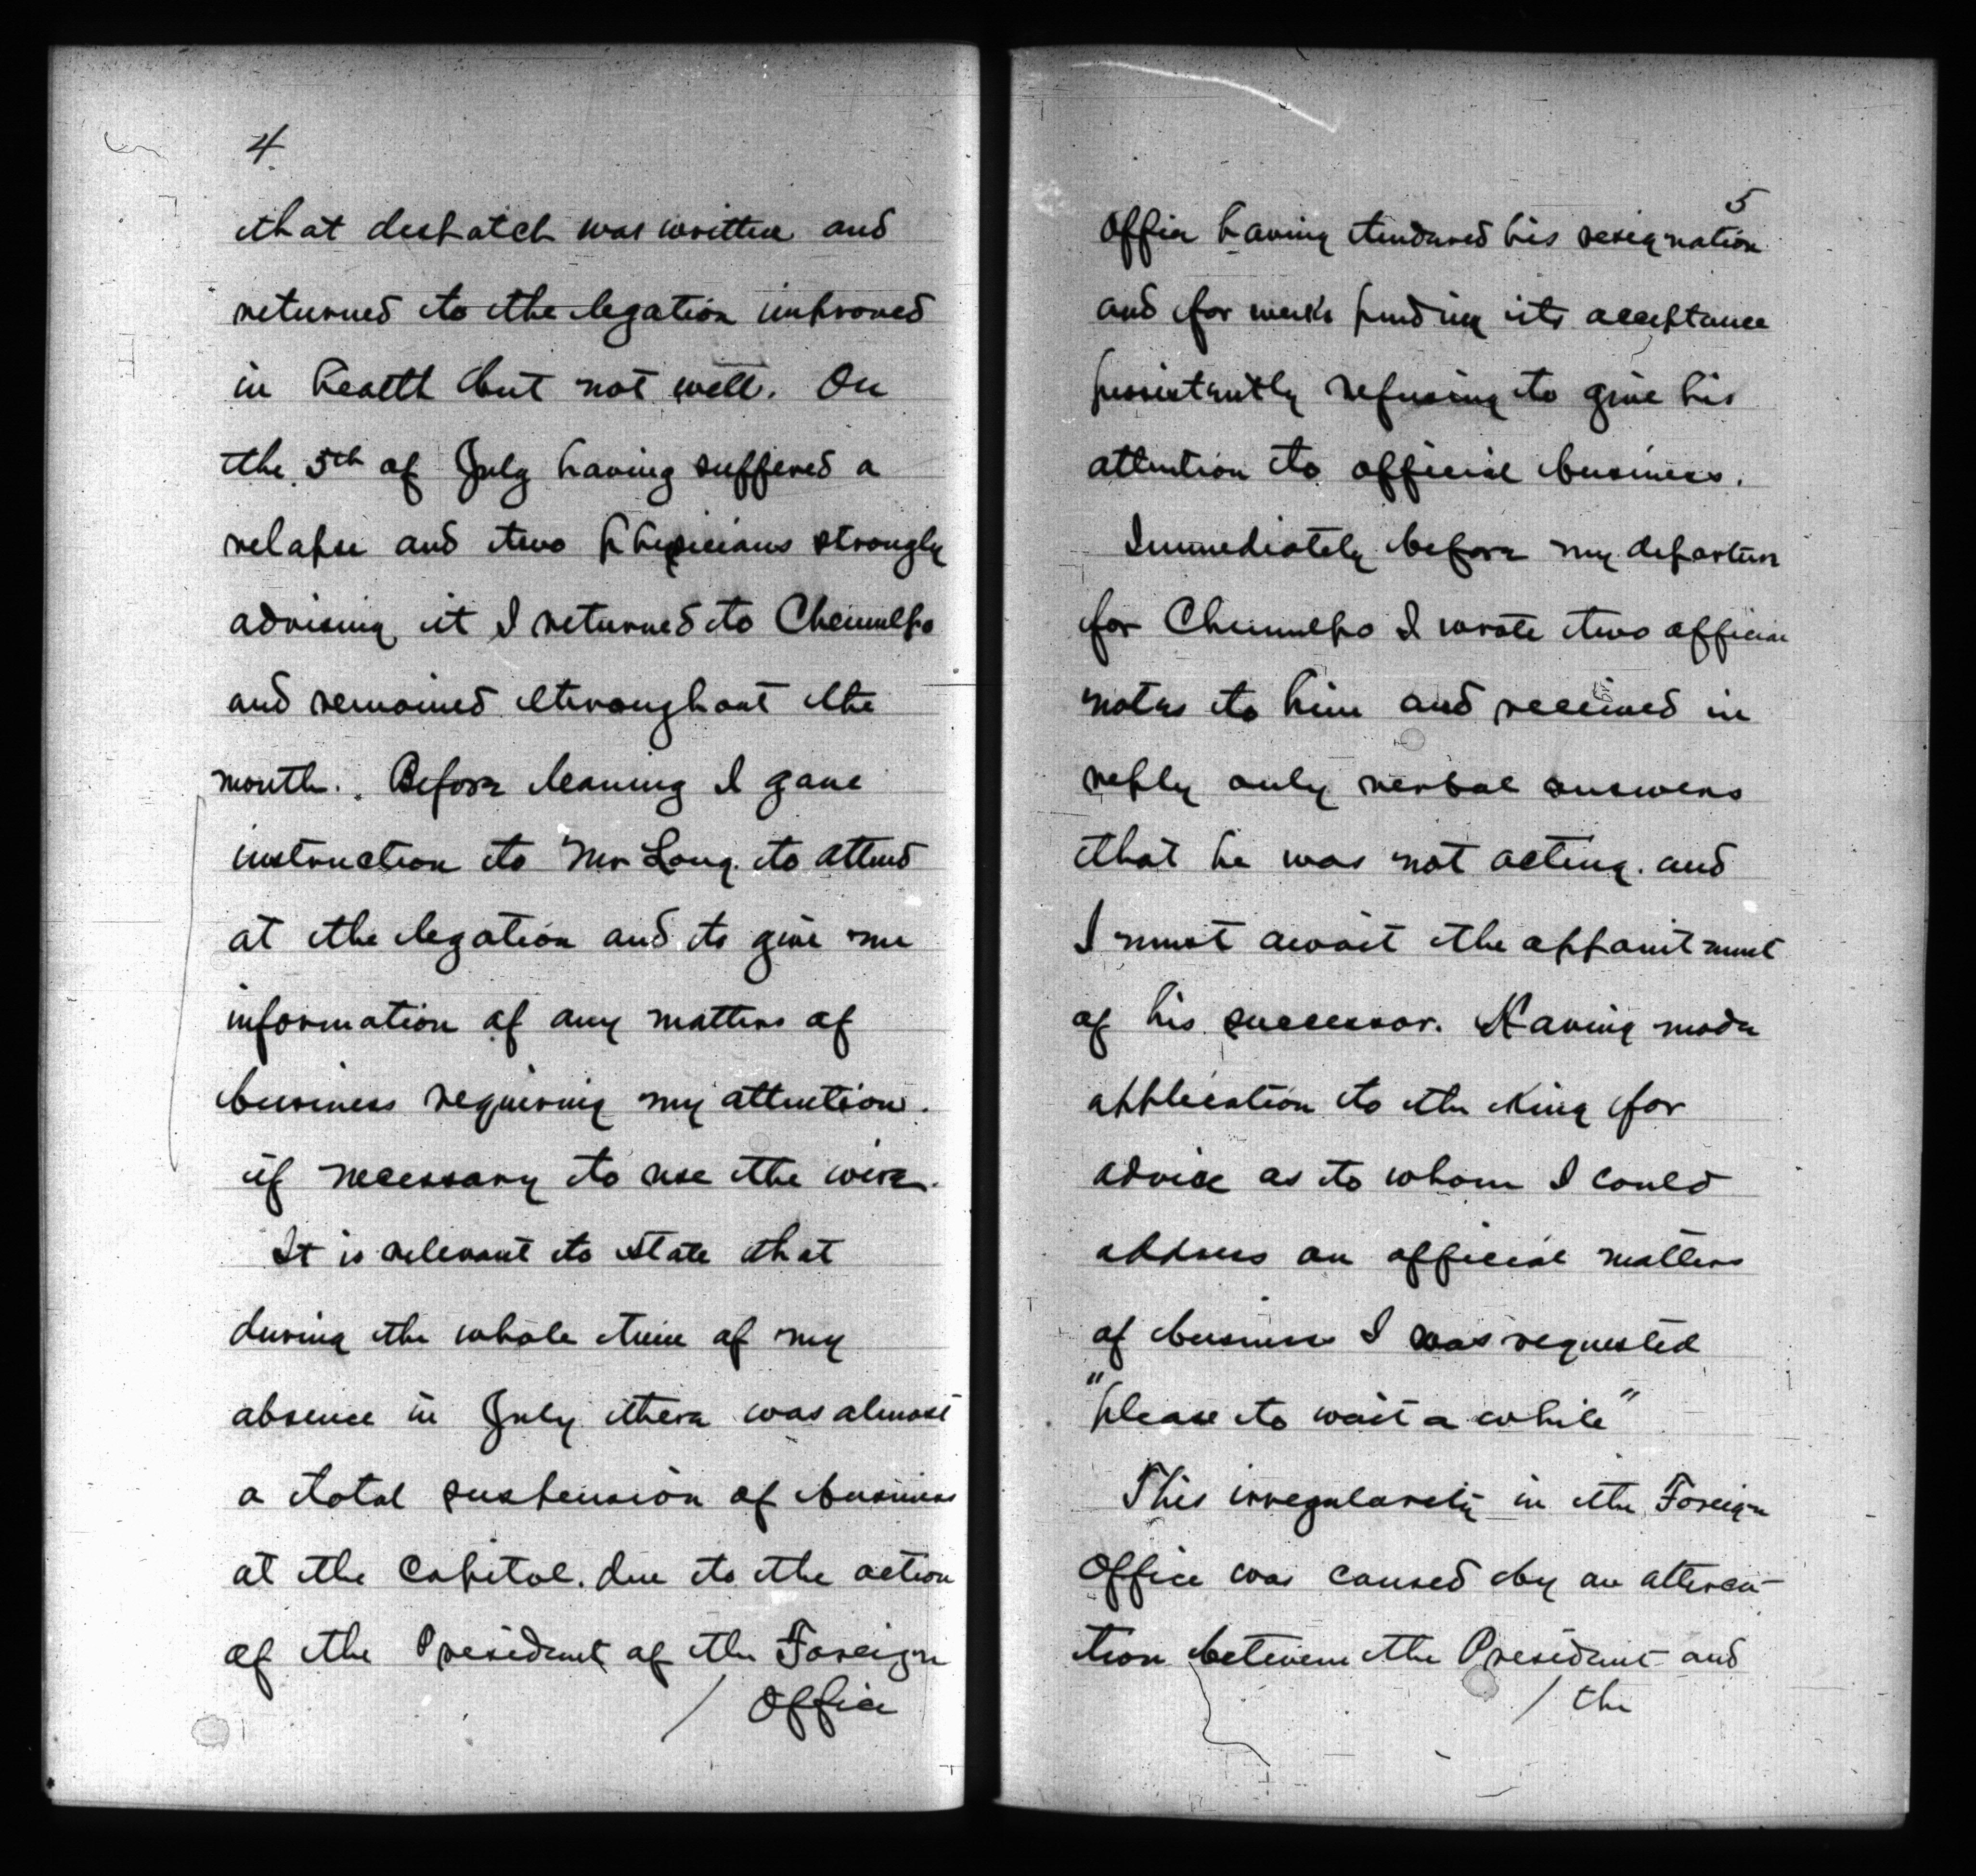 4
that despatch was written and
returned to the legation improved
in health but not well. On
the 5th of July having suffered a
relapse and two physicians strongly
advising it I returned to Chemulpo
and remained throughout the
month. Before leaving I gave
instruction to Mr Long to attend
at the legation and to give me
information of any matters of
business requiring my attention.
if necessary to use the wire.
It is relevant to state that
during the whole time of my
absence in July there was almost
a total suspension of business
at the Capitol. due to the action
of the President of the Foreign
/ Office
5
Office having tendered his resignation
and for weeks pending its acceptance
persistently refusing to give his
attention to official business.
Immediately before my departure
for Chemulpo I wrote two official
notes to him and received in
reply only verbal answers
that he was not acting. and
I must await the appointment
of his successor. Having made
application to the King for
advice as to whom I could
address on official matters
of business I was requested
"please to wait a while"
This irregularity in the Foreign
Office was caused by an alterca-
tion between the President and
/ the